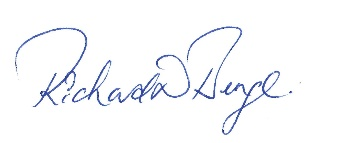 Richard D Benge.